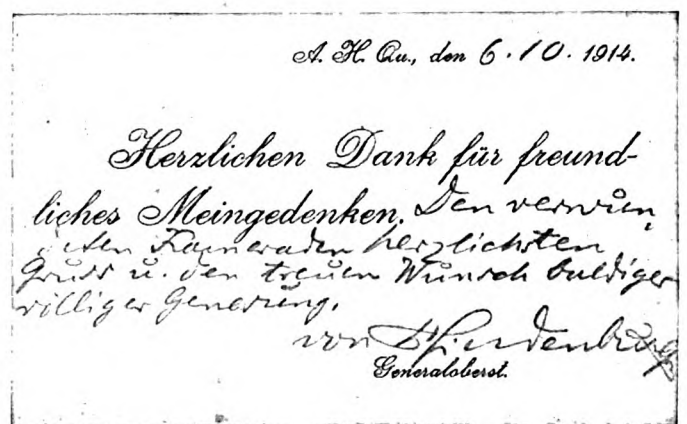 A. H. Qu., den 6. 10. 1914.
Herzlichen Dank für freund-
liches Meingedenken. Den verwun
deten Kameraden herzlichsten
Gruss u. den treuen Wunsch baldiger
völliger Genesung.
von Hindenburg
Generaloberst.